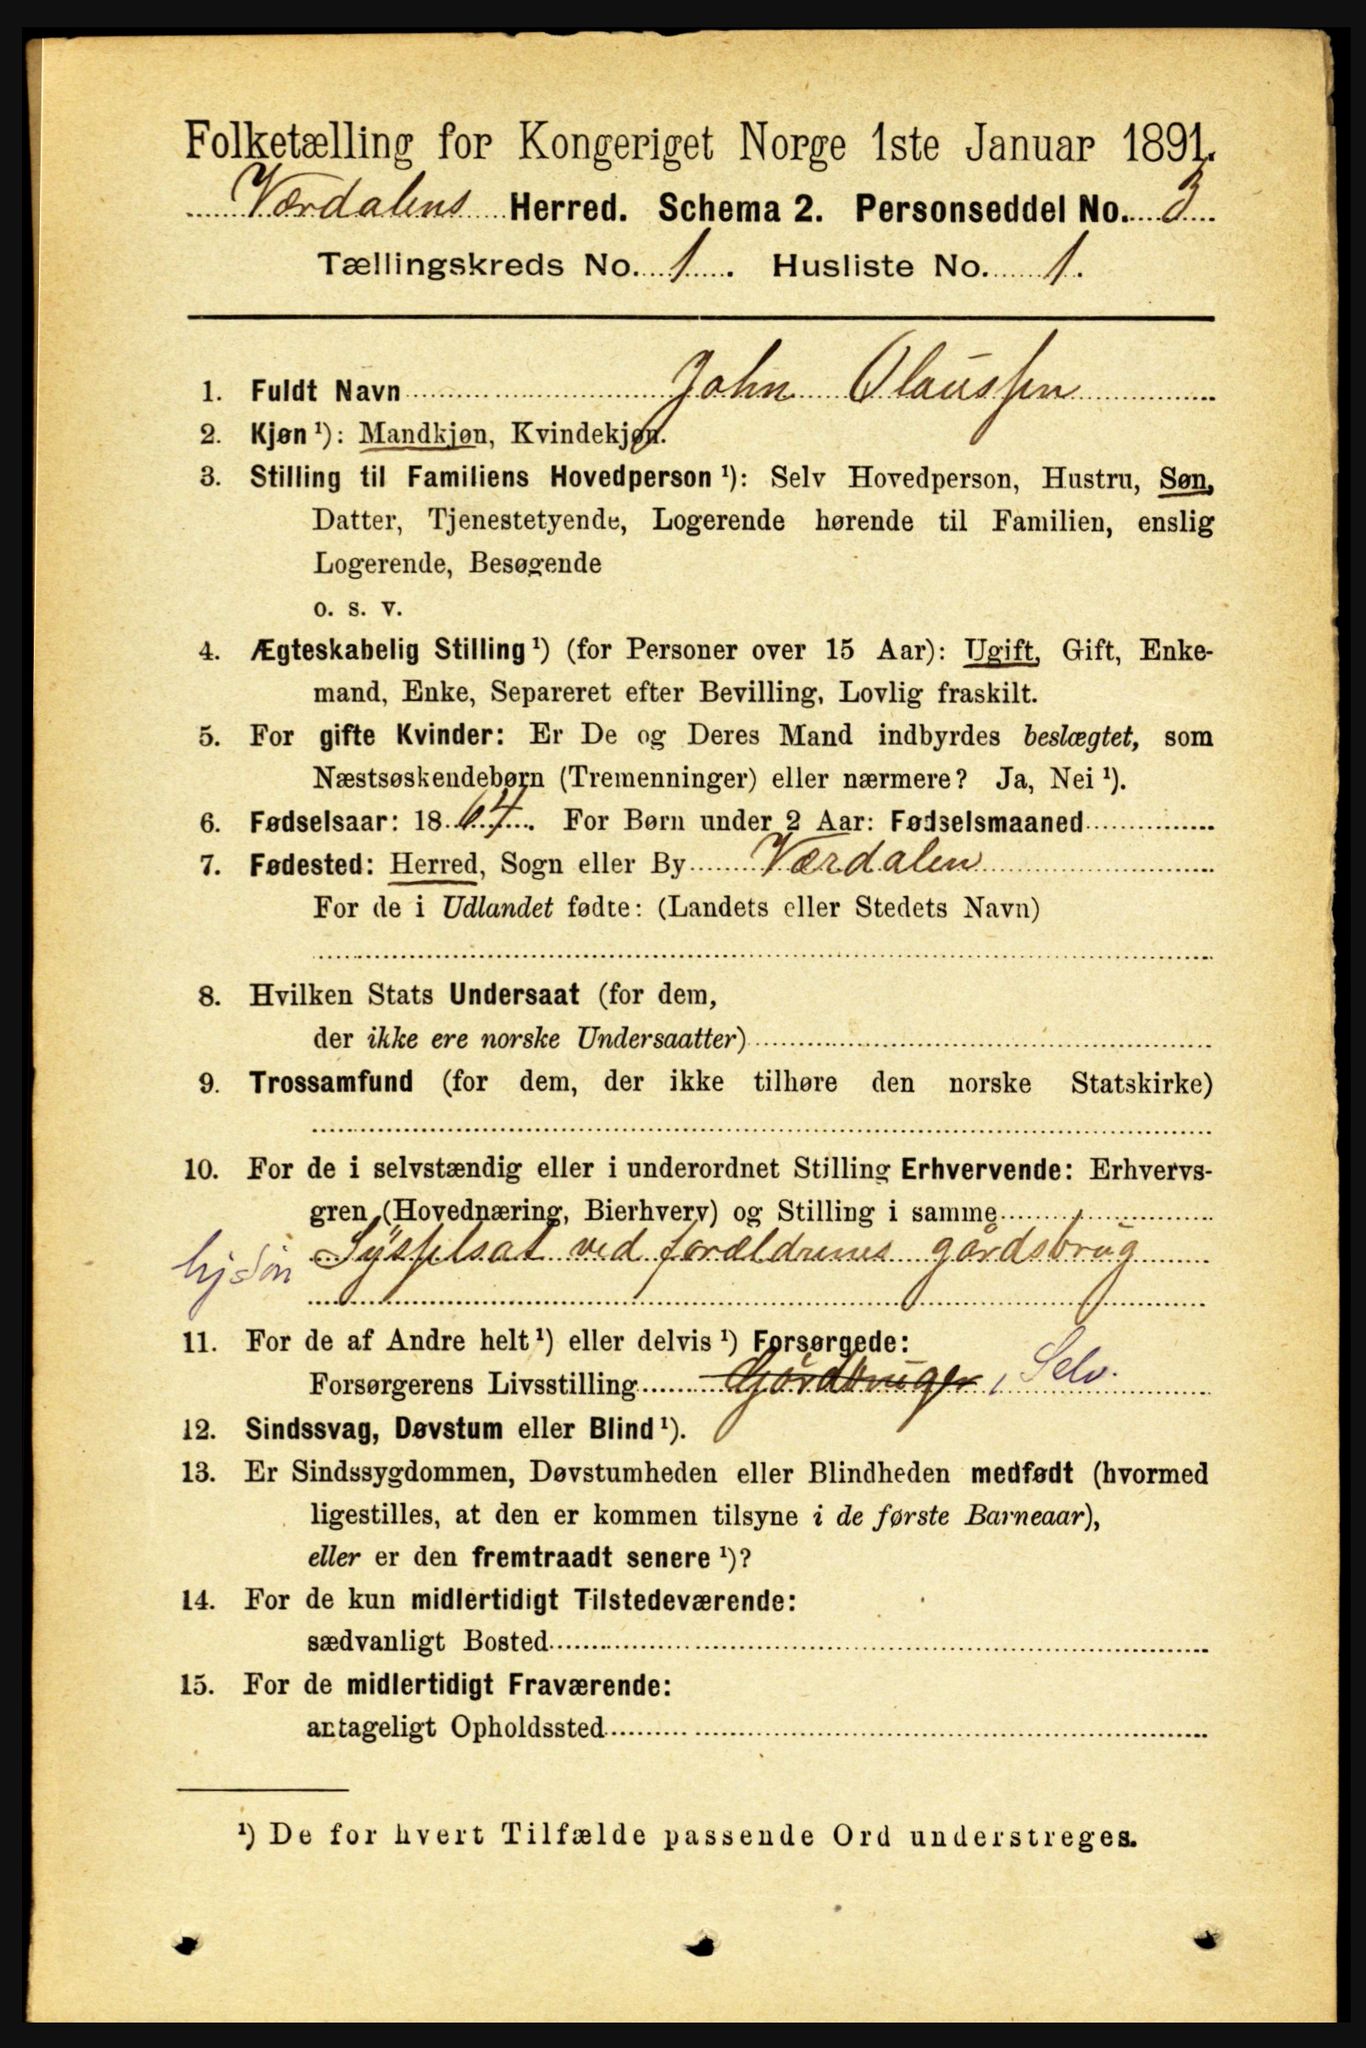 Folketælling for Kongeriget Norge 1ste Januar 1891.
Værdalens Herred. Schema 2. Personseddel No. 3
Tællingskreds No. 1. Husliste No. 1.
1. Fuldt Navn John Olaussen
2. Kjøn ¹): Mandkjøn, Kvindekjøn.
3. Stilling til Familiens Hovedperson ¹): Selv Hovedperson, Hustru, Søn,
Datter, Tjenestetyende, Logerende hørende til Familien, enslig
Logerende, Besøgende
o. s. v.
4. Ægteskabelig Stilling ¹) (for Personer over 15 Aar): Ugift, Gift, Enke-
mand, Enke, Separeret efter Bevilling, Lovlig fraskilt.
5. For gifte Kvinder: Er De og Deres Mand indbyrdes beslægtet, som
Næstsøskendebørn (Tremenninger) eller nærmere? Ja, Nei ¹).
6. Fødselsaar: 1864. For Børn under 2 Aar: Fødselsmaaned
7. Fødested: Herred, Sogn eller By Værdalen
For de i Udlandet fødte: (Landets eller Stedets Navn)
8. Hvilken Stats Undersaat (for dem,
der ikke ere norske Undersaatter)
9. Trossamfund (for dem, der ikke tilhøre den norske Statskirke)
10. For de i selvstændig eller i underordnet Stilling Erhvervende: Erhvervs-
gren (Hovednæring, Bierhverv) og Stilling i samme
Sysselsat ved forældrenes gårdsbrug
hj Søn
11. For de af Andre helt ¹) eller delvis ¹) Forsørgede:
Forsørgerens Livsstilling Gårdbruger, Selv.
12. Sindssvag, Døvstum eller Blind ¹).
13. Er Sindssygdommen, Døvstumheden eller Blindheden medfødt (hvormed
ligestilles, at den er kommen tilsyne i de første Barneaar),
eller er den fremtraadt senere ¹)?
14. For de kun midlertidigt Tilstedeværende:
sædvanligt Bosted
15. For de midlertidigt Fraværende:
antageligt Opholdssted
¹) De for hvert Tilfælde passende Ord understreges.